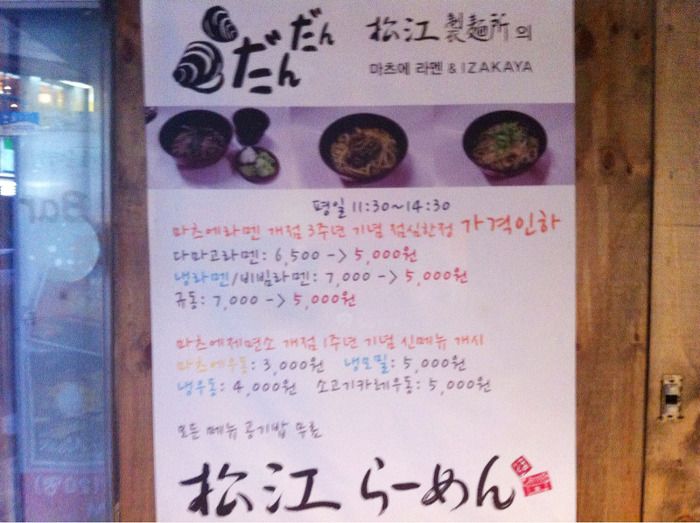 だんだん
松江 製麺所 의
마츠에 라멘 & IZAKAYA
평일 11:30~14:30
마츠에라멘 개점 3주년 기념 점심한정 가격인하
다마고라멘: 6,500 -> 5,000원
냉라멘/비빔라멘: 7,000 -> 5,000원
규동: 7,000 -> 5,000원
마츠에제면소 개점 1주년 기념 신메뉴 개시
마츠에우동: 3,000원 냉모밀: 5,000원
냉우동: 4,000원 소고기카레우동: 5,000원
모든 메뉴 공기밥 무료
松江らーめん
Bar